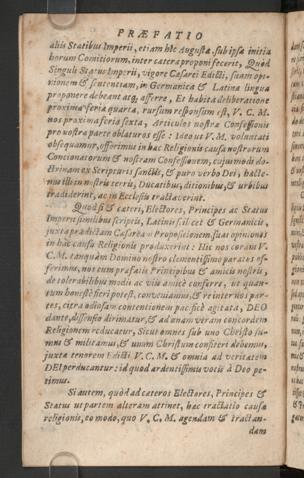 PRÆFATIO
aliis Statibus Imperii, etiam hîc Augustæ, sub ipsa initia
horum Comitiorum, inter cætera proponi fecerit, Quòd
Singuli Status Imperii, vigore Cæsarei Edicti, suam opi-
nionem & sententiam, in Germanica & Latina lingua
proponere debeant atq; offerre, Et habita deliberatione
proxima feria quarta, rursum responsum est, V. C. M.
nos proxima feria sexta, Articulos nostræ Confessionis
pro nostra parte oblaturos esse: Ideo ut V. M. voluntati
obsequamur, offerimus in hac Religionis causa nostrorum
Concionatorum & nostram Confessionem, cujusmodi do-
ctrinam ex Scripturis sanctis, & puro verbo Dei, hacte-
nus illi in nostris terris, Ducatibus, ditionibus, & urbibus
tradiderint, ac in Ecclesiis tractaverint.
Quodsi & cæteri, Electores, Principes ac Status
Imperii, similibus scriptis, Latinis scilicet & Germanicis,
juxta prædictam Cæsaream Propositionem, suas opiniones
in hac causa Religionis produxerint: Hic nos coram V.
C. M. tanquam Domino nostro clementissimo paratos of-
ferimus, nos cum præfatis Principibus & amicis nostris,
de tolerabilibus modis ac viis amicè conferre, ut quan-
tum honestè fieri potest, conveniamus, & re inter nos par-
tes, citra odiosam contentionem pacificè agitata, DEO
dante, dissensio dirimatur, & ad unam veram concordem
Religionem reducatur, Sicut omnes sub uno Christo su-
mus & militamus, & unum Christum confiteri debemus,
juxta tenorem Edicti V. C. M. & omnia ad veritatem
DEI perducantur: id quod ardentissimis votis à Deo pe-
timus.
Si autem, quòd ad cæteros Electores, Principes &
Status ut partem alteram attinet, hæc tractatio causæ
religionis, eo modo, quo V. C. M. agendam & tractan-
dam